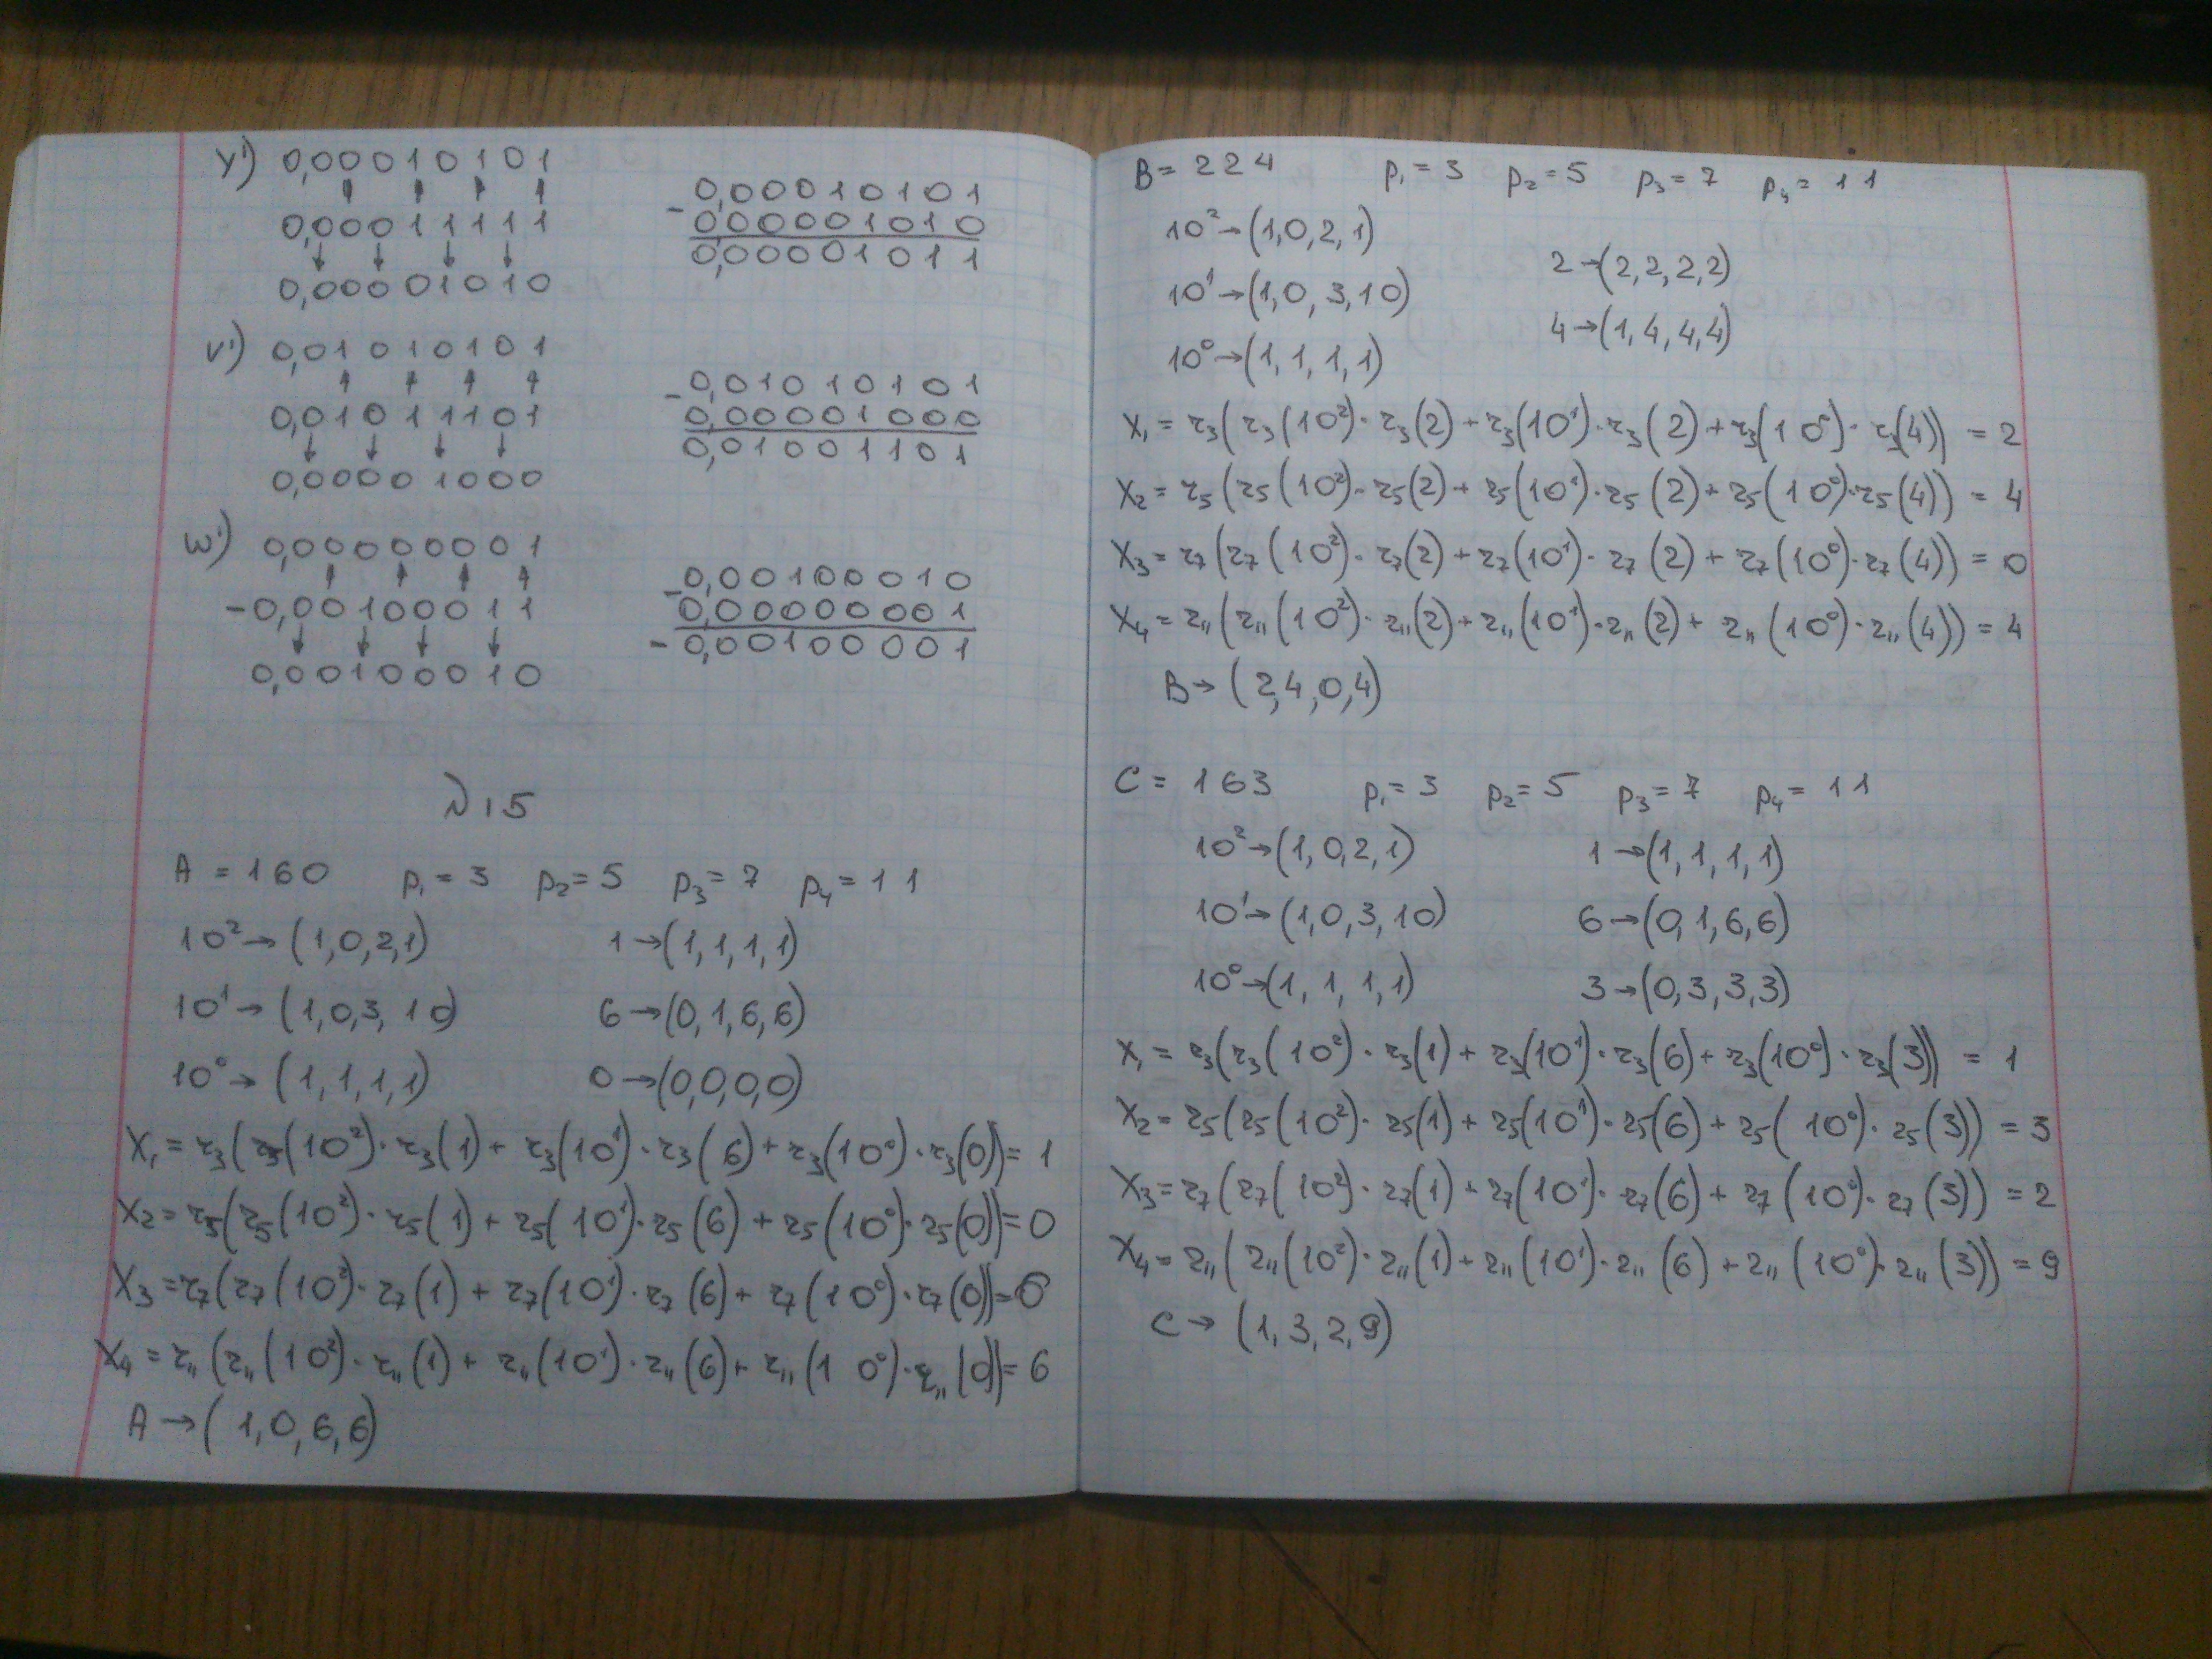 y') 0,00010101
0,00011111
0,00001010
0,00010101
- 0,00001010
0,00001011
v') 0,01010101
0,01011101
0,00001000
0,01010101
- 0,00001000
0,01001101
w') 0,00000001
-0,00100011
0,00100010
0,00100010
- 0,00000001
- 0,00100001
№15
A = 160 p₁ = 3 p₂ = 5 p₃ = 7 p₄ = 11
10² → (1,0,2,1) 1 → (1,1,1,1)
10¹ → (1,0,3,10) 6 → (0,1,6,6)
10⁰ → (1,1,1,1) 0 → (0,0,0,0)
X₁ = r₃(r₃(10²)·r₃(1) + r₃(10¹)·r₃(6) + r₃(10⁰)·r₃(0)) = 1
X₂ = r₅(r₅(10²)·r₅(1) + r₅(10¹)·r₅(6) + r₅(10⁰)·r₅(0)) = 0
X₃ = r₇(r₇(10²)·r₇(1) + r₇(10¹)·r₇(6) + r₇(10⁰)·r₇(0)) = 6
X₄ = r₁₁(r₁₁(10²)·r₁₁(1) + r₁₁(10¹)·r₁₁(6) + r₁₁(10⁰)·r₁₁(0)) = 6
A → (1,0,6,6)
B = 224 p₁ = 3 p₂ = 5 p₃ = 7 p₄ = 11
10² → (1,0,2,1)
2 → (2,2,2,2)
10¹ → (1,0,3,10)
4 → (1,4,4,4)
10⁰ → (1,1,1,1)
X₁ = r₃(r₃(10²)·r₃(2) + r₃(10¹)·r₃(2) + r₃(10⁰)·r₃(4)) = 2
X₂ = r₅(r₅(10²)·r₅(2) + r₅(10¹)·r₅(2) + r₅(10⁰)·r₅(4)) = 4
X₃ = r₇(r₇(10²)·r₇(2) + r₇(10¹)·r₇(2) + r₇(10⁰)·r₇(4)) = 0
X₄ = r₁₁(r₁₁(10²)·r₁₁(2) + r₁₁(10¹)·r₁₁(2) + r₁₁(10⁰)·r₁₁(4)) = 4
B → (2,4,0,4)
C = 163 p₁ = 3 p₂ = 5 p₃ = 7 p₄ = 11
10² → (1,0,2,1) 1 → (1,1,1,1)
10¹ → (1,0,3,10) 6 → (0,1,6,6)
10⁰ → (1,1,1,1) 3 → (0,3,3,3)
X₁ = r₃(r₃(10²)·r₃(1) + r₃(10¹)·r₃(6) + r₃(10⁰)·r₃(3)) = 1
X₂ = r₅(r₅(10²)·r₅(1) + r₅(10¹)·r₅(6) + r₅(10⁰)·r₅(3)) = 3
X₃ = r₇(r₇(10²)·r₇(1) + r₇(10¹)·r₇(6) + r₇(10⁰)·r₇(3)) = 2
X₄ = r₁₁(r₁₁(10²)·r₁₁(1) + r₁₁(10¹)·r₁₁(6) + r₁₁(10⁰)·r₁₁(3)) = 9
C → (1,3,2,9)